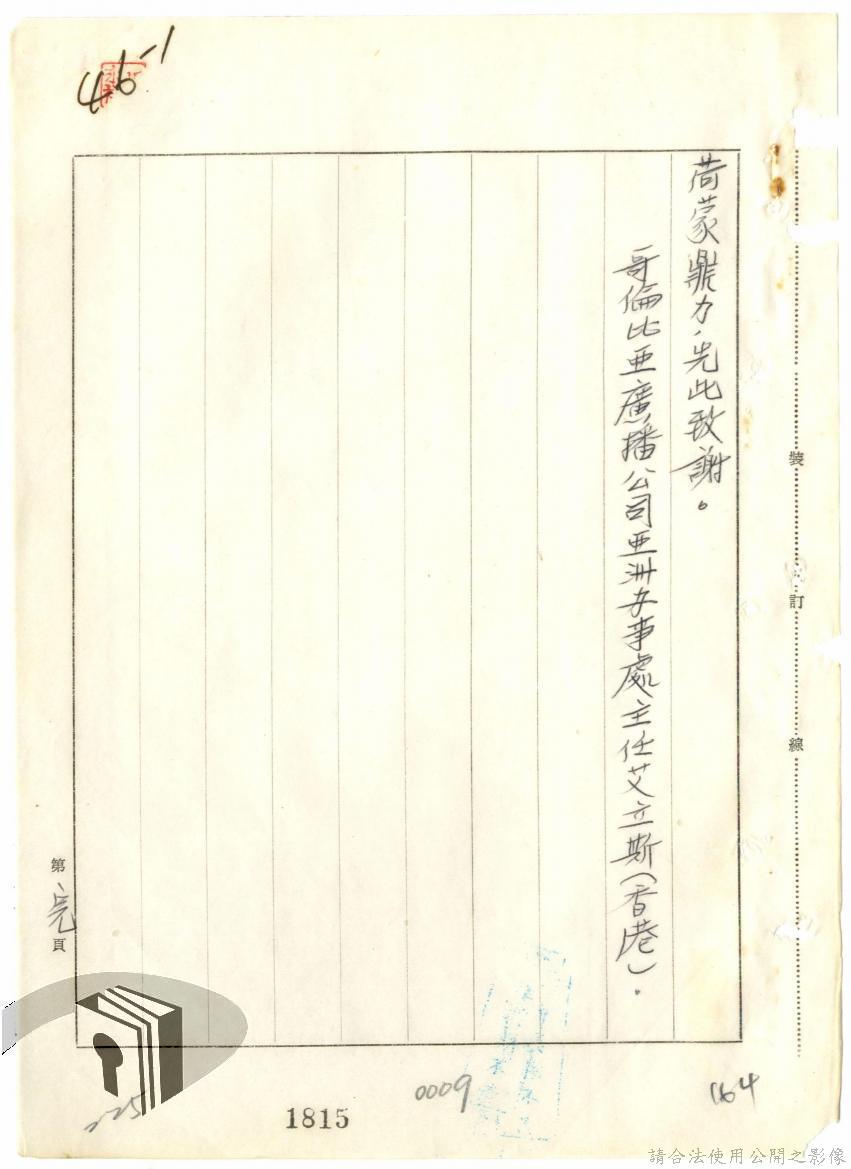 46-1
荷蒙鼎力，先此致謝。
哥倫比亞廣播公司亞洲办事處主任艾立斯（香港）。
裝
訂
線
第完頁
225
1815
0009
164
請合法使用公開之影像